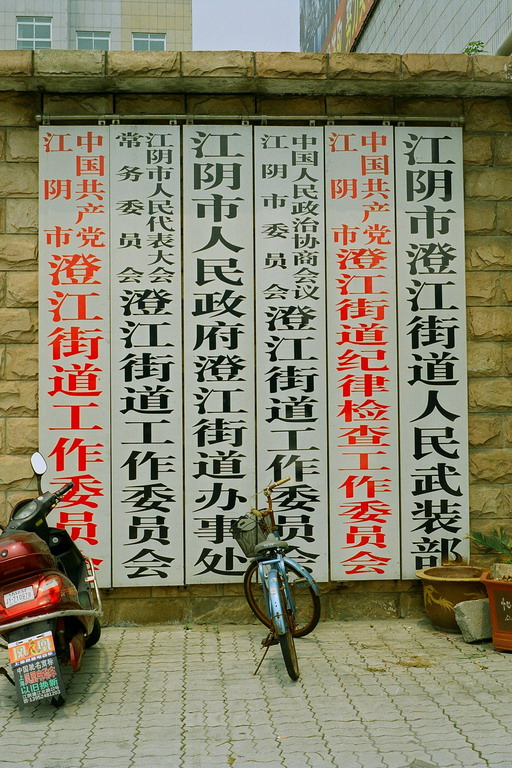 中国共产党
江阴市
澄江街道工作委员会
江阴市人民代表大会
常务委员会
澄江街道工作委员会
江阴市人民政府澄江街道办事处
中国人民政治协商会议
江阴市委员会
澄江街道工作委员会
中国共产党
江阴市
澄江街道纪律检查工作委员会
江阴市澄江街道人民武装部
凤凰
以旧换新